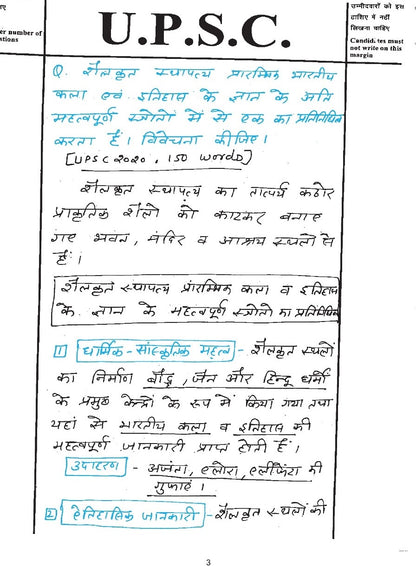 U.P.S.C.
er number of
stions
उम्मीदवारों को इस
हाशिए में नहीं
लिखना चाहिए
Candidates must
not write on this
margin
Q. शैलकृत स्थापत्य प्रारम्भिक भारतीय
कला एवं इतिहास के ज्ञान के अति
महत्वपूर्ण स्त्रोतों में से एक का प्रतिनिधित्व
करता है। विवेचना कीजिए।
[UPSC 2020, 150 words]
शैलकृत स्थापत्य का तात्पर्य कठोर
प्राकृतिक शैलों को काटकर बनाए
गए भवन, मंदिर व आश्रय स्थलों से
है।
शैलकृत स्थापत्य प्रारम्भिक कला व इतिहास
के ज्ञान के महत्वपूर्ण स्त्रोतों का प्रतिनिधित्व
1 धार्मिक-सांस्कृतिक महत्व - शैलकृत स्थलों
का निर्माण बौद्ध, जैन और हिन्दू धर्मों
के प्रमुख केन्द्रों के रूप में किया गया तथा
यहां से भारतीय कला व इतिहास की
महत्वपूर्ण जानकारी प्राप्त होती है।
उदाहरण - अजंता, एलोरा, एलीफेंटा की
गुफाएं।
2 ऐतिहासिक जानकारी - शैलकृत स्थलों की
3